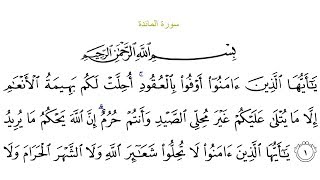 سورة المائدة
بِسْمِ ٱللَّهِ ٱلرَّحْمَٰنِ ٱلرَّحِيمِ
يَٰٓأَيُّهَا ٱلَّذِينَ ءَامَنُوٓا۟ أَوْفُوا۟ بِٱلْعُقُودِ ۚ أُحِلَّتْ لَكُم بَهِيمَةُ ٱلْأَنْعَٰمِ
إِلَّا مَا يُتْلَىٰ عَلَيْكُمْ غَيْرَ مُحِلِّى ٱلصَّيْدِ وَأَنتُمْ حُرُمٌ ۗ إِنَّ ٱللَّهَ يَحْكُمُ مَا يُرِيدُ
١ يَٰٓأَيُّهَا ٱلَّذِينَ ءَامَنُوا۟ لَا تُحِلُّوا۟ شَعَٰٓئِرَ ٱللَّهِ وَلَا ٱلشَّهْرَ ٱلْحَرَامَ وَلَا